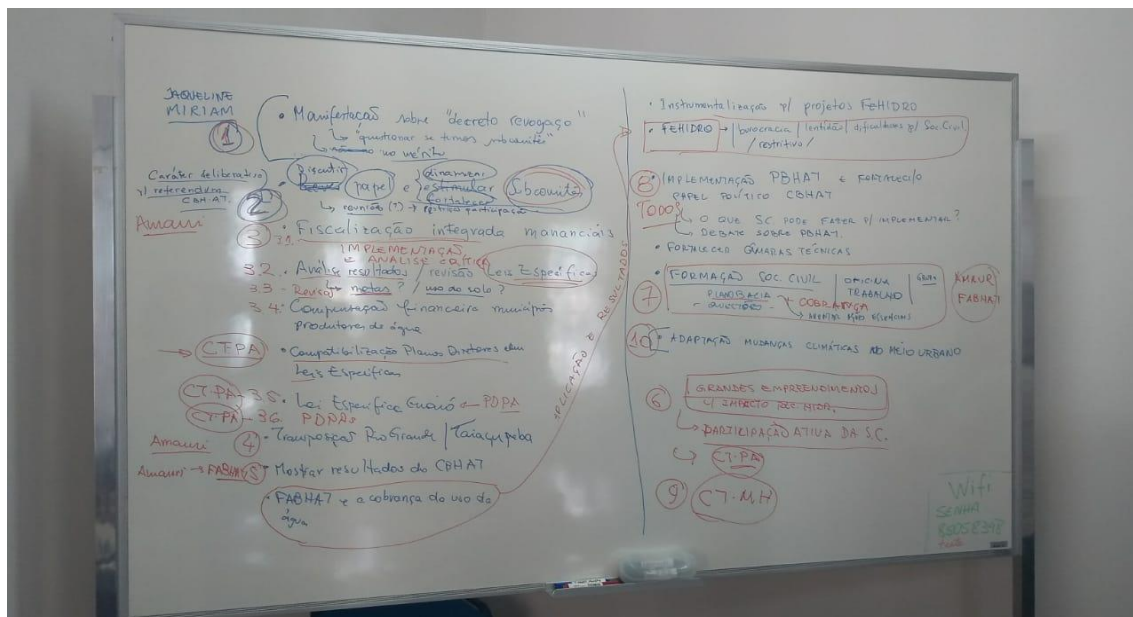 JAQUELINE
MIRIAM
1
• Manifestação sobre "decreto revogaço"
↳ "questionar se temos subcomitês"
↳ no mérito
Caráter deliberativo
p/ referendum
CBHAT.
2
• Discutir papel e dinamizar
estimular
fortalecer
Subcomitês
↳ reunião (?) →
participação
Amauri
3
3.1. • Fiscalização integrada mananciais
IMPLEMENTAÇÃO
E ANÁLISE CRÍTICA
3.2. • Análise resultados / revisão Leis Específicas
3.3 - Revisão ↳ metas? / uso do solo?
3.4 • Compensação financeira municípios
produtores de água
→ CT-PA • Compatibilização Planos Diretores com
Leis Específicas
CT-PA - 3.5. • Lei Específica Guaió ← PDPA
CT-PA - 3.6. PDPAs
Amauri 4 • Transposição Rio Grande / Taiaçupeba
Amauri → FABHAT 5 • Mostrar resultados do CBHAT
• FABHAT e a cobrança do uso da
água
APLICAÇÃO E RESULTADOS
• Instrumentalização p/ projetos FEHIDRO
• FEHIDRO → burocracia / lentidão / dificuldades p/ Soc. Civil
/ restritivo /
8 • IMPLEMENTAÇÃO PBHAT E FORTALECI/O
PAPEL POLÍTICO CBHAT
TODOS
↳ O QUE SC PODE FAZER P/ IMPLEMENTAR?
↳ DEBATE SOBRE PBHAT.
• FORTALECI/O CÂMARAS TÉCNICAS
7 • FORMAÇÃO SOC. CIVIL / OFICINA
TRABALHO
PLANO BACIA
COBRANÇA
AMAURI
FABHAT
10 • ADAPTAÇÃO MUDANÇAS CLIMÁTICAS NO MEIO URBANO
6 • GRANDES EMPREENDIMENTOS
C/ IMPACTO REC. HIDR.
↳ PARTICIPAÇÃO ATIVA DA S.C.
↳ CT-PA
9 CT-MH
Wifi
SENHA